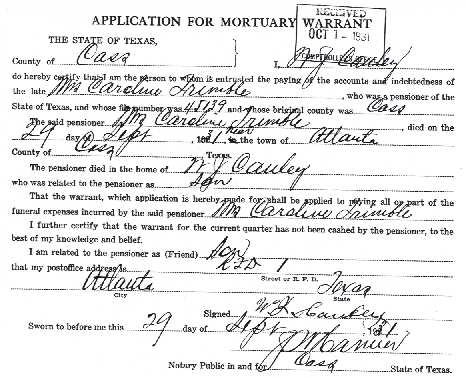 RECEIVED
APPLICATION FOR MORTUARY WARRANT
OCT 1 - 1931
THE STATE OF TEXAS,
County of Cass I, W J Cauley
do hereby certify that I am the person to whom is entrusted the paying of the accounts and indebtedness of
the late Mrs Caroline Trimble, who was a pensioner of the
State of Texas, and whose file number was 45139 and whose original county was Cass
The said pensioner, Mrs Caroline Trimble, died on the
29 day of Sept, 1931, near in the town of Atlanta
County of Cass Texas.
The pensioner died in the home of W J Cauley
who was related to the pensioner as Son
That the warrant, which application is hereby made for, shall be applied to paying all or part of the
funeral expenses incurred by the said pensioner Mrs Caroline Trimble
I further certify that the warrant for the current quarter has not been cashed by the pensioner, to the
best of my knowledge and belief.
I am related to the pensioner as (Friend) Son
that my postoffice address is RFD 1
Street or R. F. D.
Atlanta Texas
City State
Signed W J Cauley
Sworn to before me this 29 day of Sept 31
Notary Public in and for Cass State of Texas.